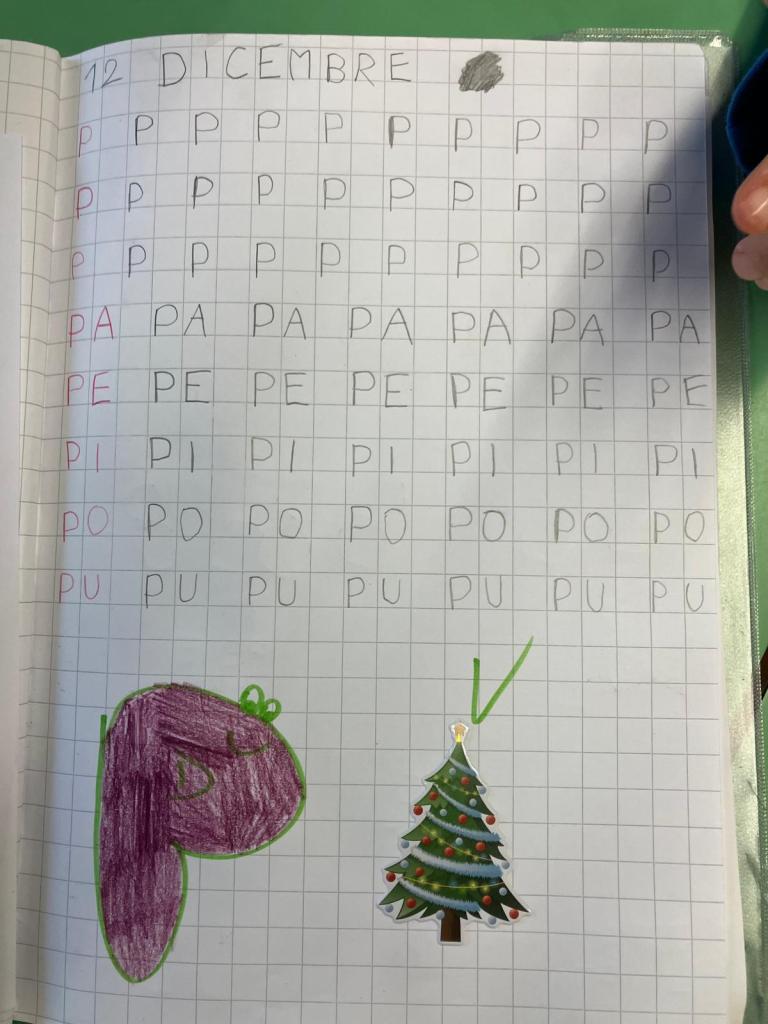 12 DICEMBRE
P P P P P P P P P P
P P P P P P P P P P
P P P P P P P P P P
PA PA PA PA PA PA PA
PE PE PE PE PE PE PE
PI PI PI PI PI PI PI
PO PO PO PO PO PO PO
PU PU PU PU PU PU PU